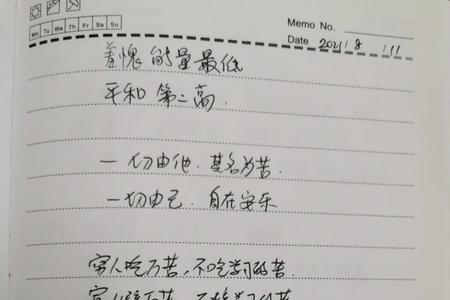 Memo No.
Mo Tu We Th Fr Sa Su
Date 2021 / 8 / 11
羞愧 能量最低
平和 第二高.
一切由他. 其名为苦.
一切由己. 自在安乐
穷人吃万苦, 不吃学习的苦.